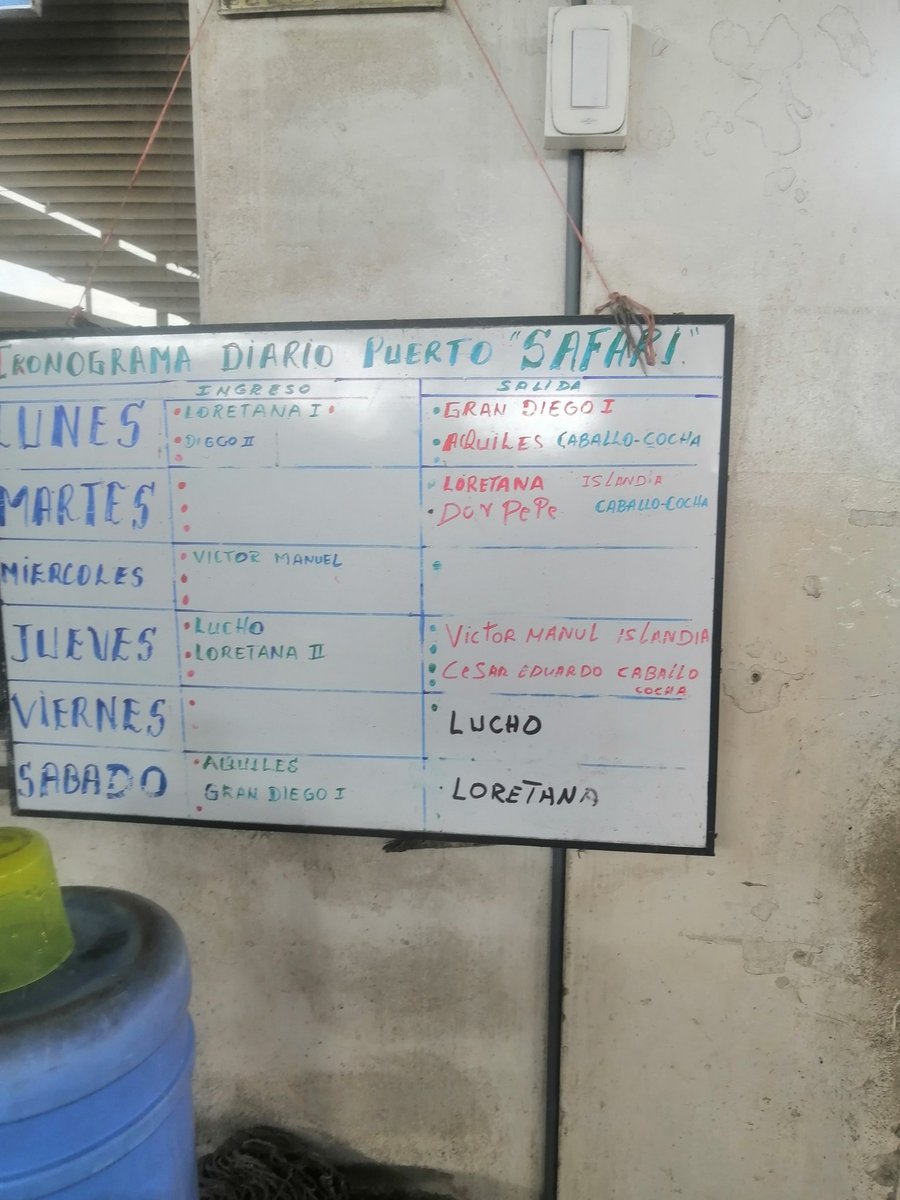 CRONOGRAMA DIARIO PUERTO "SAFARI"
INGRESO SALIDA
LUNES
• LORETANA I •
• DIEGO II
• GRAN DIEGO I
• AQUILES CABALLO-COCHA
MARTES
LORETANA ISLANDIA
• DON PEPE CABALLO-COCHA
MIERCOLES
• VICTOR MANUEL
JUEVES
• LUCHO
• LORETANA II
• VICTOR MANUL ISLANDIA
• CESAR EDUARDO CABALLO
COCHA
VIERNES
LUCHO
SABADO
• AQUILES
GRAN DIEGO I
• LORETANA